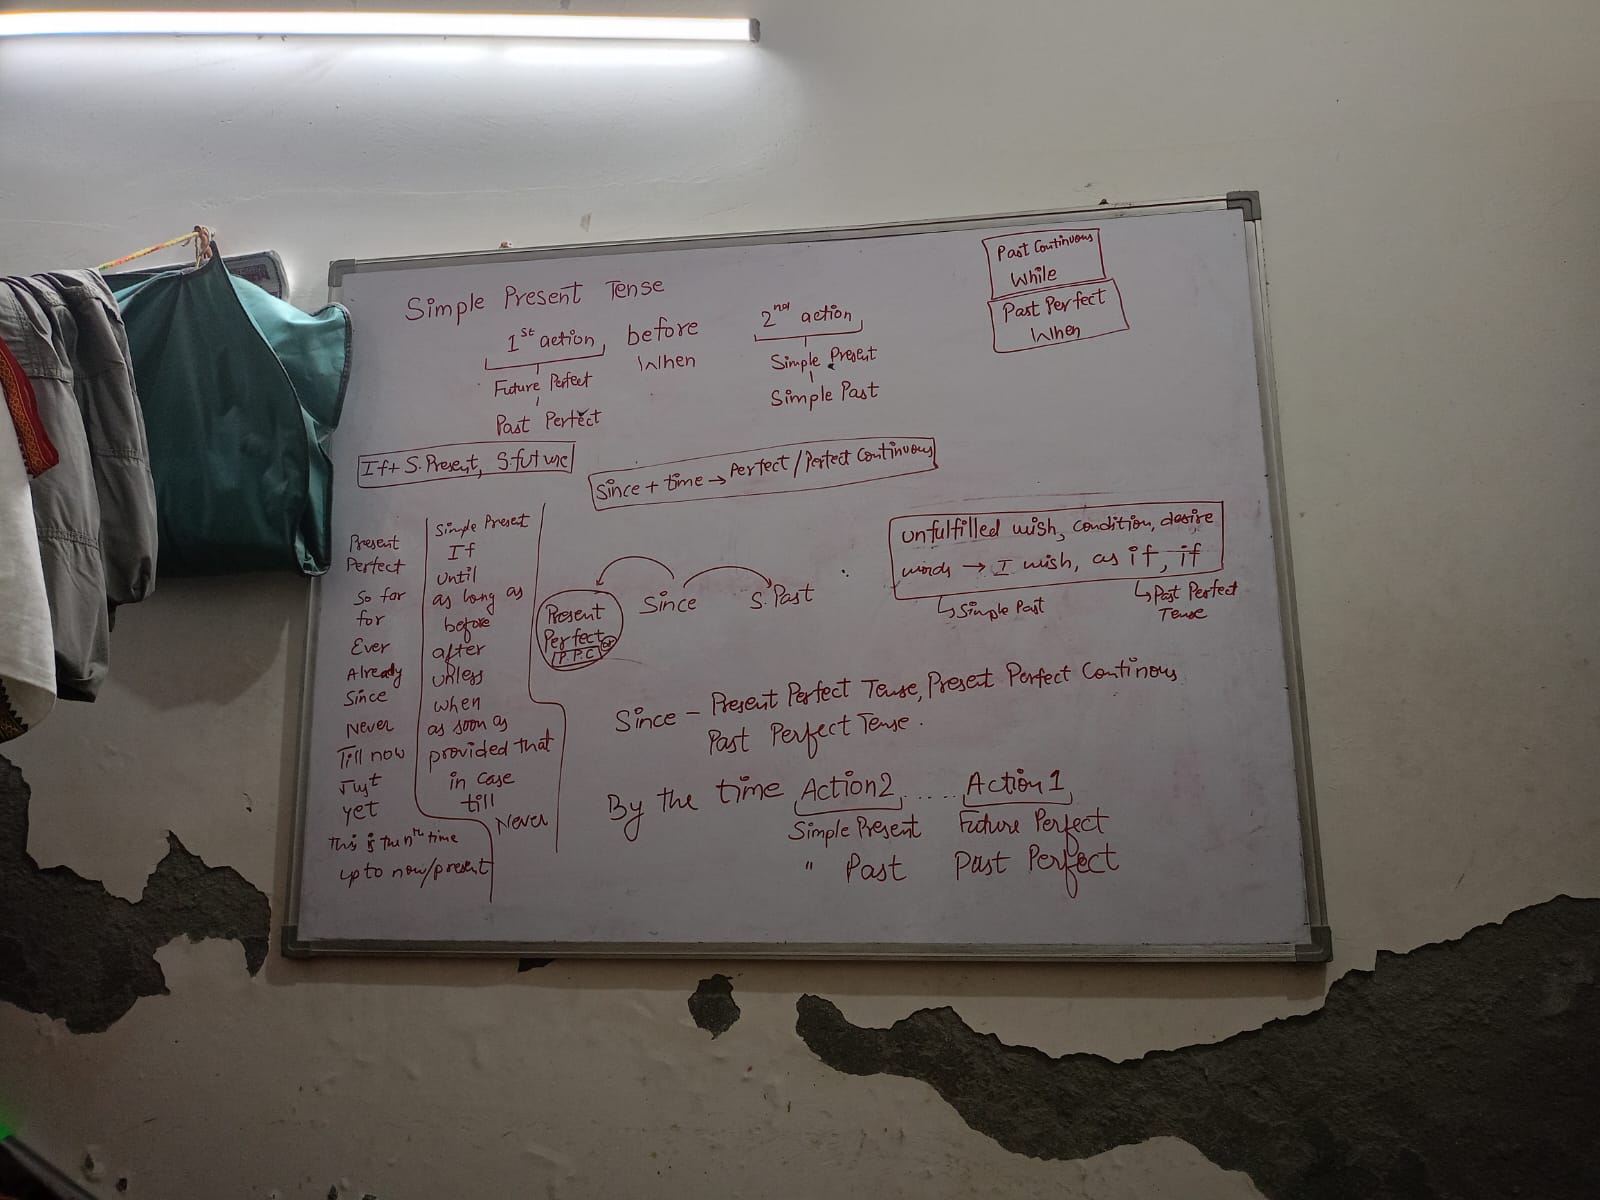 Simple Present Tense
1st action before 2nd action
When
Future Perfect
Past Perfect
Simple Present
Simple Past
Past Continuous
While
Past Perfect
When
If + S. Present, S. future
Since + time → Perfect / Perfect Continuous
Present
Perfect
So far
for
Ever
Already
Since
Never
Till now
Just
yet
This is the nth time
up to now/present
Simple Present
If
until
as long as
before
after
unless
when
as soon as
provided that
in case
till
Never
Present
Perfect
or
P.P.C
Since
S. Past
unfulfilled wish, condition, desire
words → I wish, as if, if
↳ Simple Past
↳ Past Perfect
Tense
Since - Present Perfect Tense, Present Perfect Continous
Past Perfect Tense.
By the time Action2 ..... Action1
Simple Present Future Perfect
" Past Past Perfect